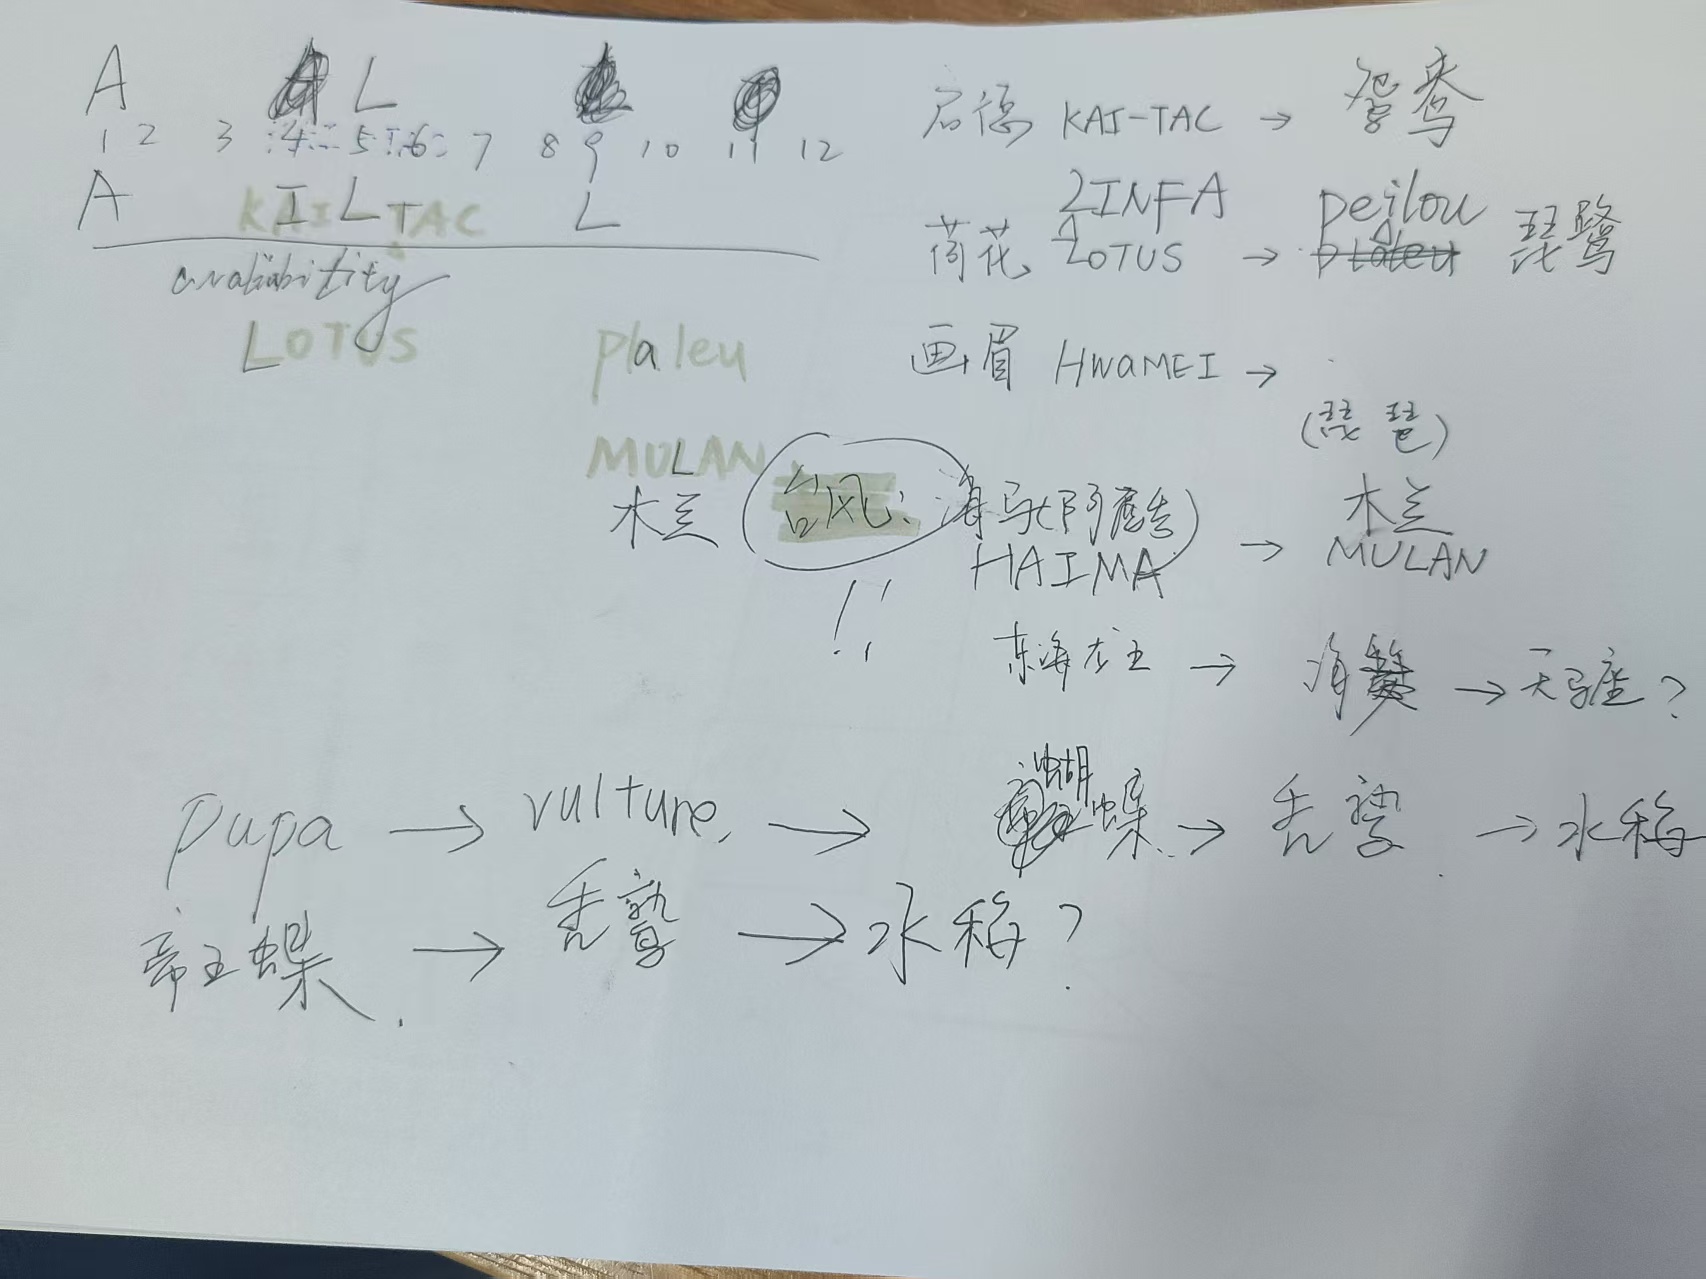 A L
1 2 3 4 5 6 7 8 9 10 11 12
A I L L
KAI TAC
LOTUS
plaleu
MULAN
木兰
台风:
!!
启德 KAI-TAC → 鸳鸯
荷花 LINFA LOTUS → peilou 琵鹭
画眉 HWAMEI →
(琵琶)
海马 HAIMA → 木兰 MULAN
东海龙王 → → 天马座?
pupa → vulture, → 蝴蝶 → 秃鹫 → 水稻
帝王蝶. → 秃鹫 → 水稻?